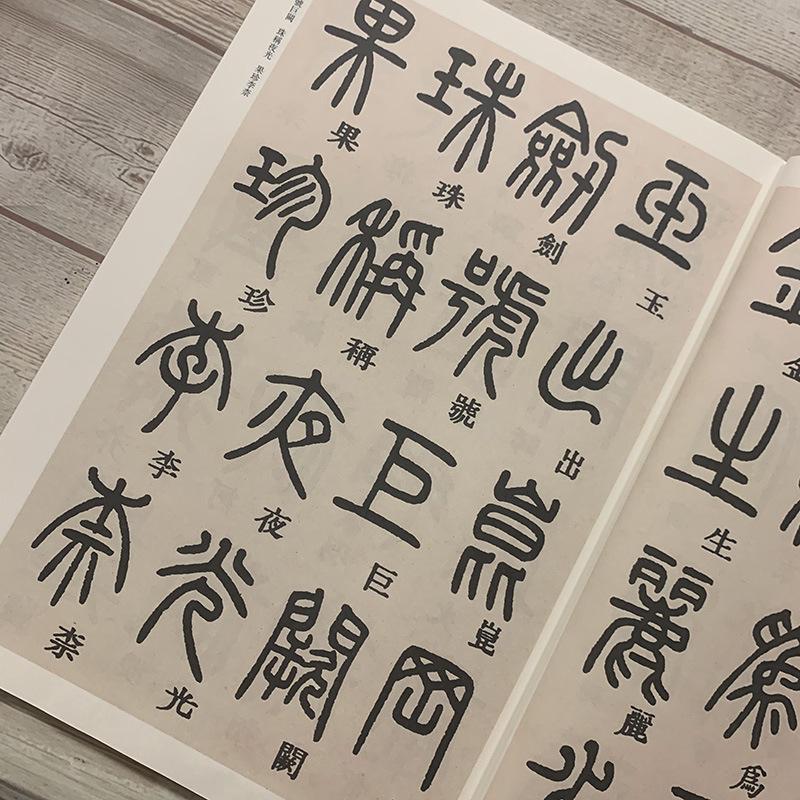 為
金生麗水
玉出崑岡
劍號巨闕
珠稱夜光
果珍李柰
號巨闕 珠稱夜光 果珍李柰